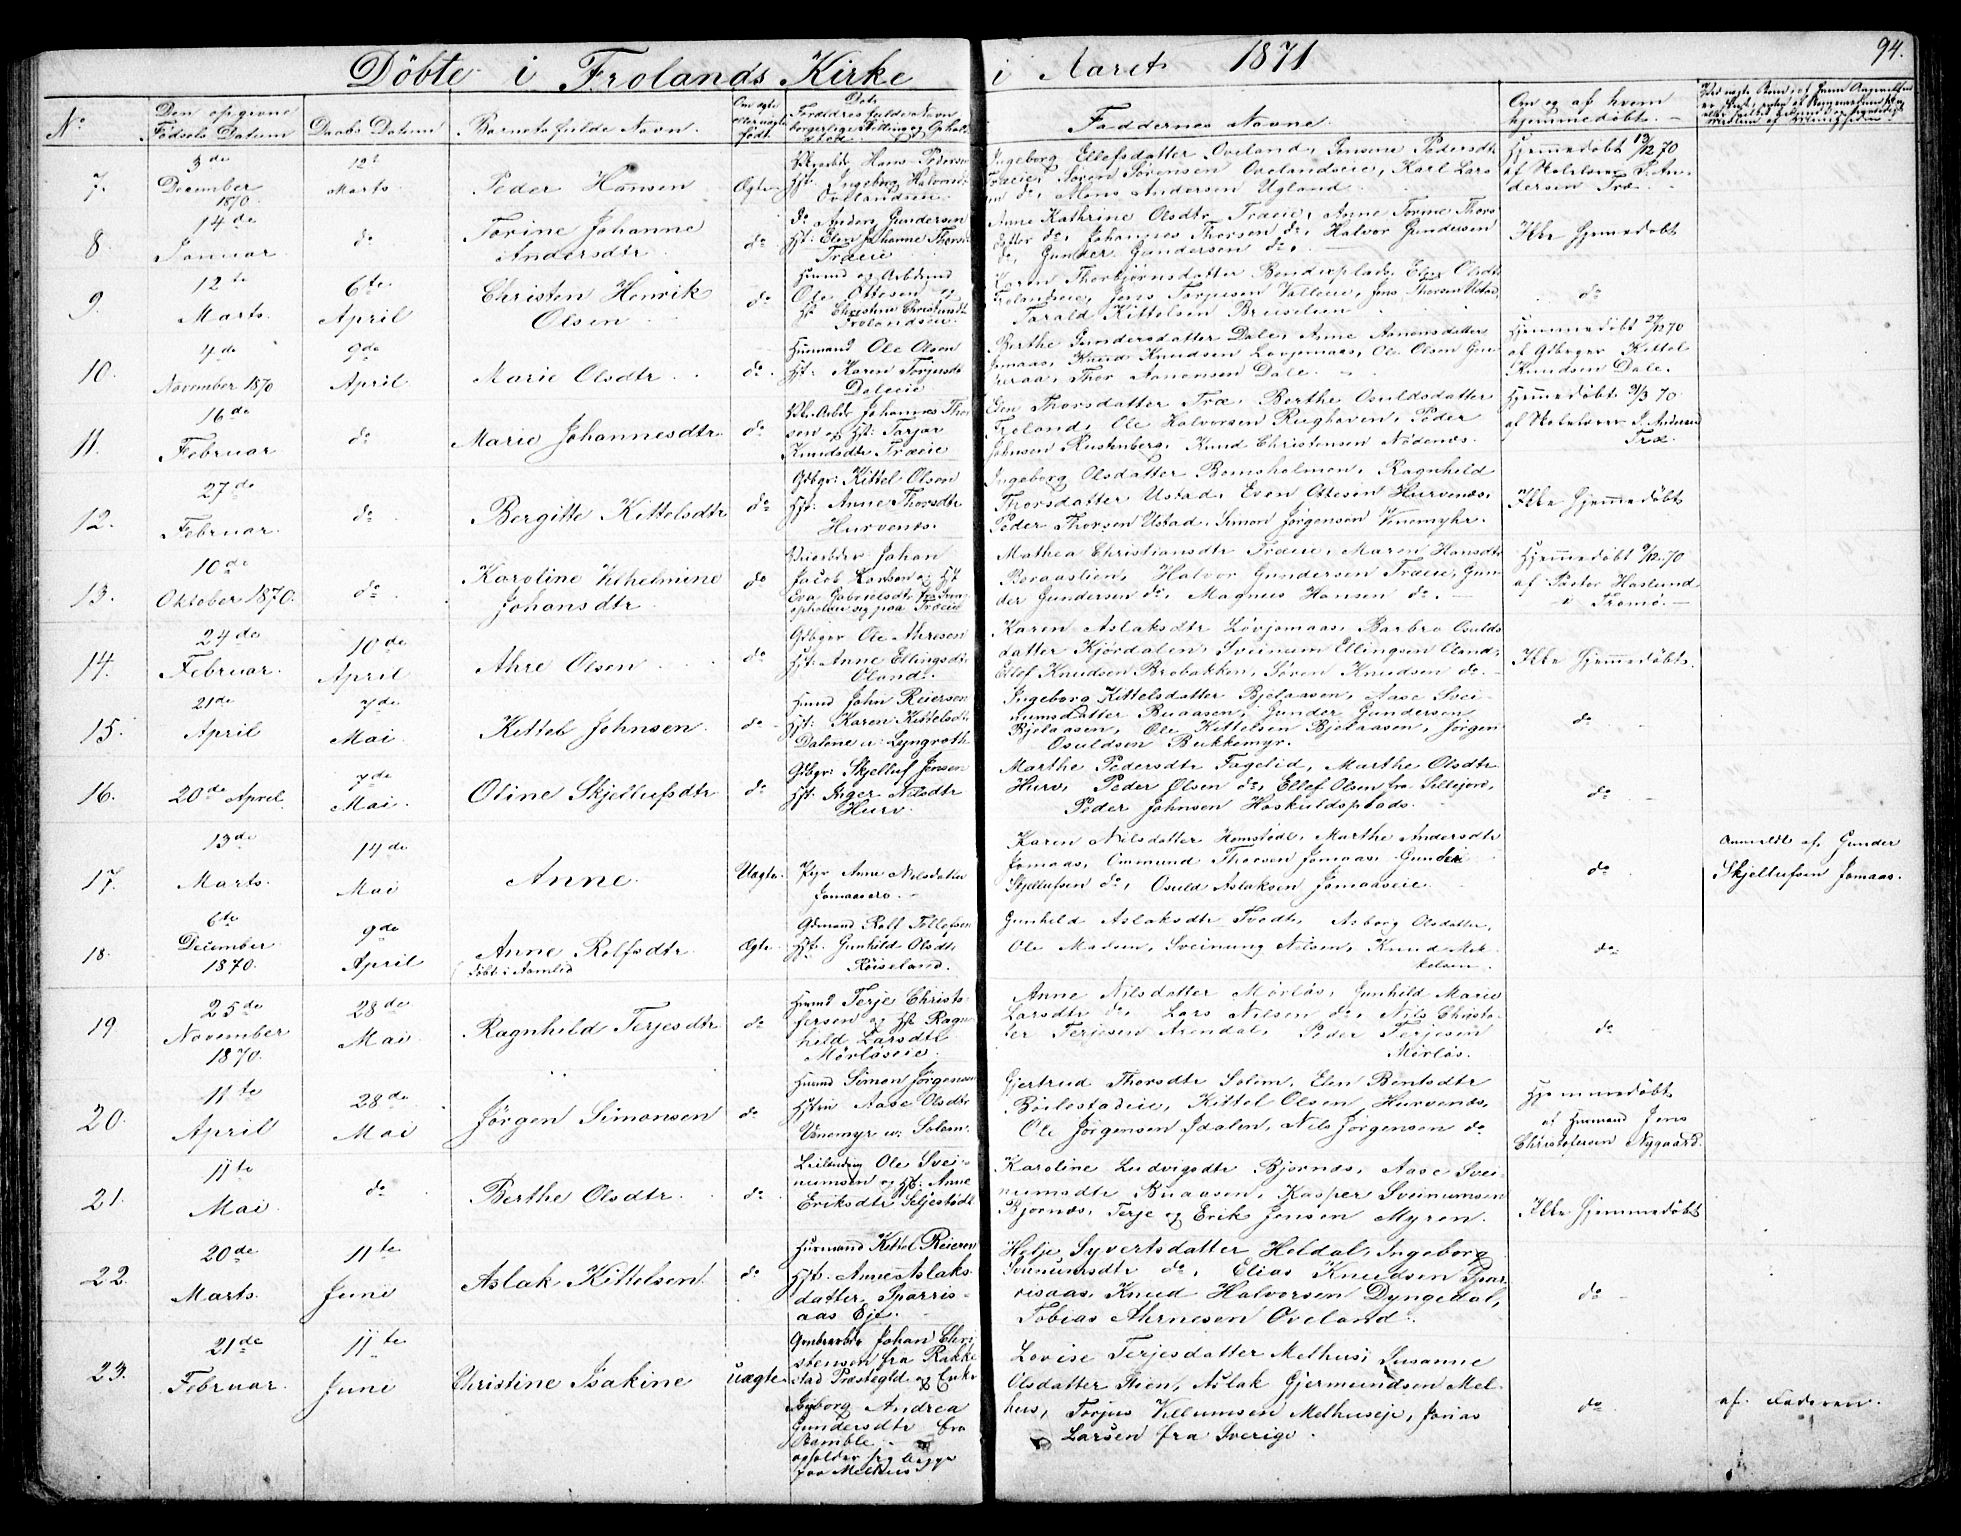 Döbte i Frolands Kirke i Aaret 1871 94.
No
Den opgivne Födsels Datum
Daabs Datum
Barnets fulde Navn.
Om ægte eller uægte födt.
Forældres fulde Navn borgerlige Stilling og Opholdssted.
Faddernes Navne.
Om og af hvem hjemmedöbt.
7.
3de December 1870.
12te Marts.
Peder Hansen
Ægte
Hans Pedersen
Hst. Ingeborg Halvorsd.
Ovelandseie.
Ingeborg Ellefsdatter Oveland, Jensine Pedersdtr
Træeie, Sören Sörensen Ovelandseie, Karl Lars
sen do, Mons Andersen Ugland.
Hjemmedöbt 13/12 70
af Skolelærer S. An-
dersen Træ.
8.
14de Januar.
do
Torine Johanne
Andersdtr
do
do Anders Gundersen
Hst: Elen Johanne Thorsd.
Træeie
Anne Kathrine Olsdtr Træeie, Anne Torine Thors
datter do, Johannes Thorsen do, Halvor Gundersen
do, Gunder Gundersen do.
Ikke hjemmedöbt
9.
12te Marts.
6te April
Christen Henrik
Olsen
do
Husmd og Arbdmd
Ole Ottesen og
Hst Christine Christensdtr
Frolandseie.
Karen Thorbjørnsdatter Benderplads, Elen Olsdtr
Frolandseie, Jens Torjusen Valleeie, Jens Thorsen Ustad,
Tarald Kittelsen Bruselien
do
10.
4de November 1870
9de April
Marie Olsdtr
do.
Husmand Ole Olsen
Hst: Karen Torjusdtr
Daleeie
Berthe Gundersdatter Dale, Anne Aanonsdatter
Jomaas, Knud Knudsen Lövjomaas, Ole Olsen
Thor Aanonsen Dale.
Hjemmedöbt 27/12 70
af Gdbrger Kittel
Knudsen Dale.
11.
16de Februar
do
Marie Johannesdtr.
do
Johannes Thor
sen og Hst: Tarjer
Knudsdtr Træeie
Elen Thorsdatter Træ, Berthe Osuldsdatter
Froland, Ole Halvorsen Rughaven, Peder
Johnsen Rustenberg, Knud Christensen Nödenes.
Hjemmedöbt 31/3 70
af Skolelærer S. Andersen
Træ.
12.
27de Februar.
do
Bergitte Kittelsdtr
do
Gdbgr: Kittel Olsen
Hst: Anne Thorsdtr
Hurvenes.
Ingeborg Olsdatter Bomsholmen, Ragnhild
Thorsdatter Ustad, Even Ottesen Hurvenæs,
Peder Thorsen Ustad, Simon Jörgensen Venemyhr.
Ikke hjemmedöbt
13.
10de Oktober 1870.
do
Karoline Vilhelmine
Johansdtr
do
Johan
Jacob Karlsen og Hst
Eva Gabrielsdtr fra
opholder sig paa Træeie
Mathea Christiansdtr Træeie, Maren Hansdtr
Boraaslien, Halvor Gundersen Træeie, Gun-
der Gundersen do, Magnus Hansen do.
Hjemmedöbt 9/12 70
af Pastor Haslund
i Tromö.
14.
24de Februar.
10de April
Ahre Olsen
do
Gdbger Ole Ahresen
Hst: Anne Ellingsdtr
Oland.
Karen Aslaksdtr Lövjomaas, Barbro Osulds
datter Kjordalen, Sveinum Ellingsen Oland,
Ellef Knudsen Brobakken, Sören Knudsen do.
Ikke hjemmedöbt.
15.
21de April
7de Mai.
Kittel Johnsen
do
Husmd John Reiersen
Hst: Karen Kittelsdtr
Dalene u: Lyngroth
Ingeborg Kittelsdatter Bjelaasen, Aase Svei-
numsdatter Buaasen, Gunder Gundersen
Bjelaasen, Ole Kittelsen Bjelaasen, Jörgen
Osuldsen Bukkemyr.
do
16.
20de April.
7de Mai.
Oline Skjellufsdtr
do
Gdbgr: Skjelluf Jensen
Hst: Inger Nilsdtr
Hurv
Marthe Pedersdtr Fagelid, Marthe Olsdtr
Hurv, Peder Olsen do, Ellef Olsen fra Siltejord,
Peder Johnsen Haskuldsplads.
do
17.
13de Marts.
14de Mai
Anne
Uægte
Pige Anne Nilsdatter
Jomaas
Karen Nilsdatter Homstöl, Marthe Andersdtr
Jomaas, Ommund Thorsen Jomaas, Gunder
Skjellufsen do, Osuld Aslaksen Jomaaseie.
do
Anmeldt af Gunder
Skjellufsen Jomaas.
18.
6te December 1870.
9de April
Anne Rolfsdtr.
döbt i Aamlid
Ægte
Gdmand Rolf Tellefsen
Hst. Gunhild Olsdtr
Röiseland.
Gunhild Aslaksdtr Tvedt, Asborg Olsdatter,
Ole Madsen, Sveinung Nilsen, Knud Mik-
kelsen.
do
19
25de November 1870.
28de Mai
Ragnhild Terjesdtr
do
Husmd Terje Christo-
fersen og Hst Ragn-
hild Larsdtr
Mörlöseie.
Anne Nilsdatter Mörlös, Gunhild Marie
Larsdtr do, Lars Nilsen do, Nils Christo-
fer Terjesen Arendal, Peder Terjesen
Mörlös.
do
20.
11te April
28de Mai
Jörgen Simonsen
do
Husmd Simon Jörgensen
Hstru Aase Olsdtr
Venemyr u: Solem.
Gjertrud Thorsdtr Solem, Elen Bentsdtr
Böilestadeie, Kittel Olsen Hurvenæs,
Ole Jörgensen Idalen, Nils Jörgensen do
Hjemmedöbt
af Husmand Jens
Christofersen Nygaard.
21.
11te Mai
do
Berthe Olsdtr.
do
Leilending Ole Svei-
numsen og Hst: Anne
Eriksdtr Seljestödl
Karoline Ludvigsdtr Bjornæs, Aase Svei-
numsdtr Buaasen, Kasper Sveinumsen
Bjornæs, Terje og Erik Jensen Myren.
Ikke hjemmedöbt
22.
20de Marts.
11te Juni
Aslak Kittelsen
do
Husmand Kittel Reiersen
Hst. Anne Aslaks-
datter, Sparris-
aas Eje.
Helje Syvertsdatter Heldal, Ingeborg
Sveinumsdtr do, Elias Knudsen Spar-
risaas, Knud Halvorsen Dyngedal,
Tobias Ahrnesen Oveland.
do
23.
21de Februar.
11te Juni
Christine Isakine
uægte
Grubearbdr Johan Chri
stensen fra Bakke
stad Præstegjld og Enke
Ingeborg Andrea
Gundersdtr fra
Bamble
opholder sig begge
paa Melhus
Lovise Terjesdatter Melhus, Susanne
Olsdatter Stien, Aslak Gjermundsen Mel-
hus, Torjus Villumsen Melhuseje, Jonas
Larsen fra Sverige.
do
af Faderen.